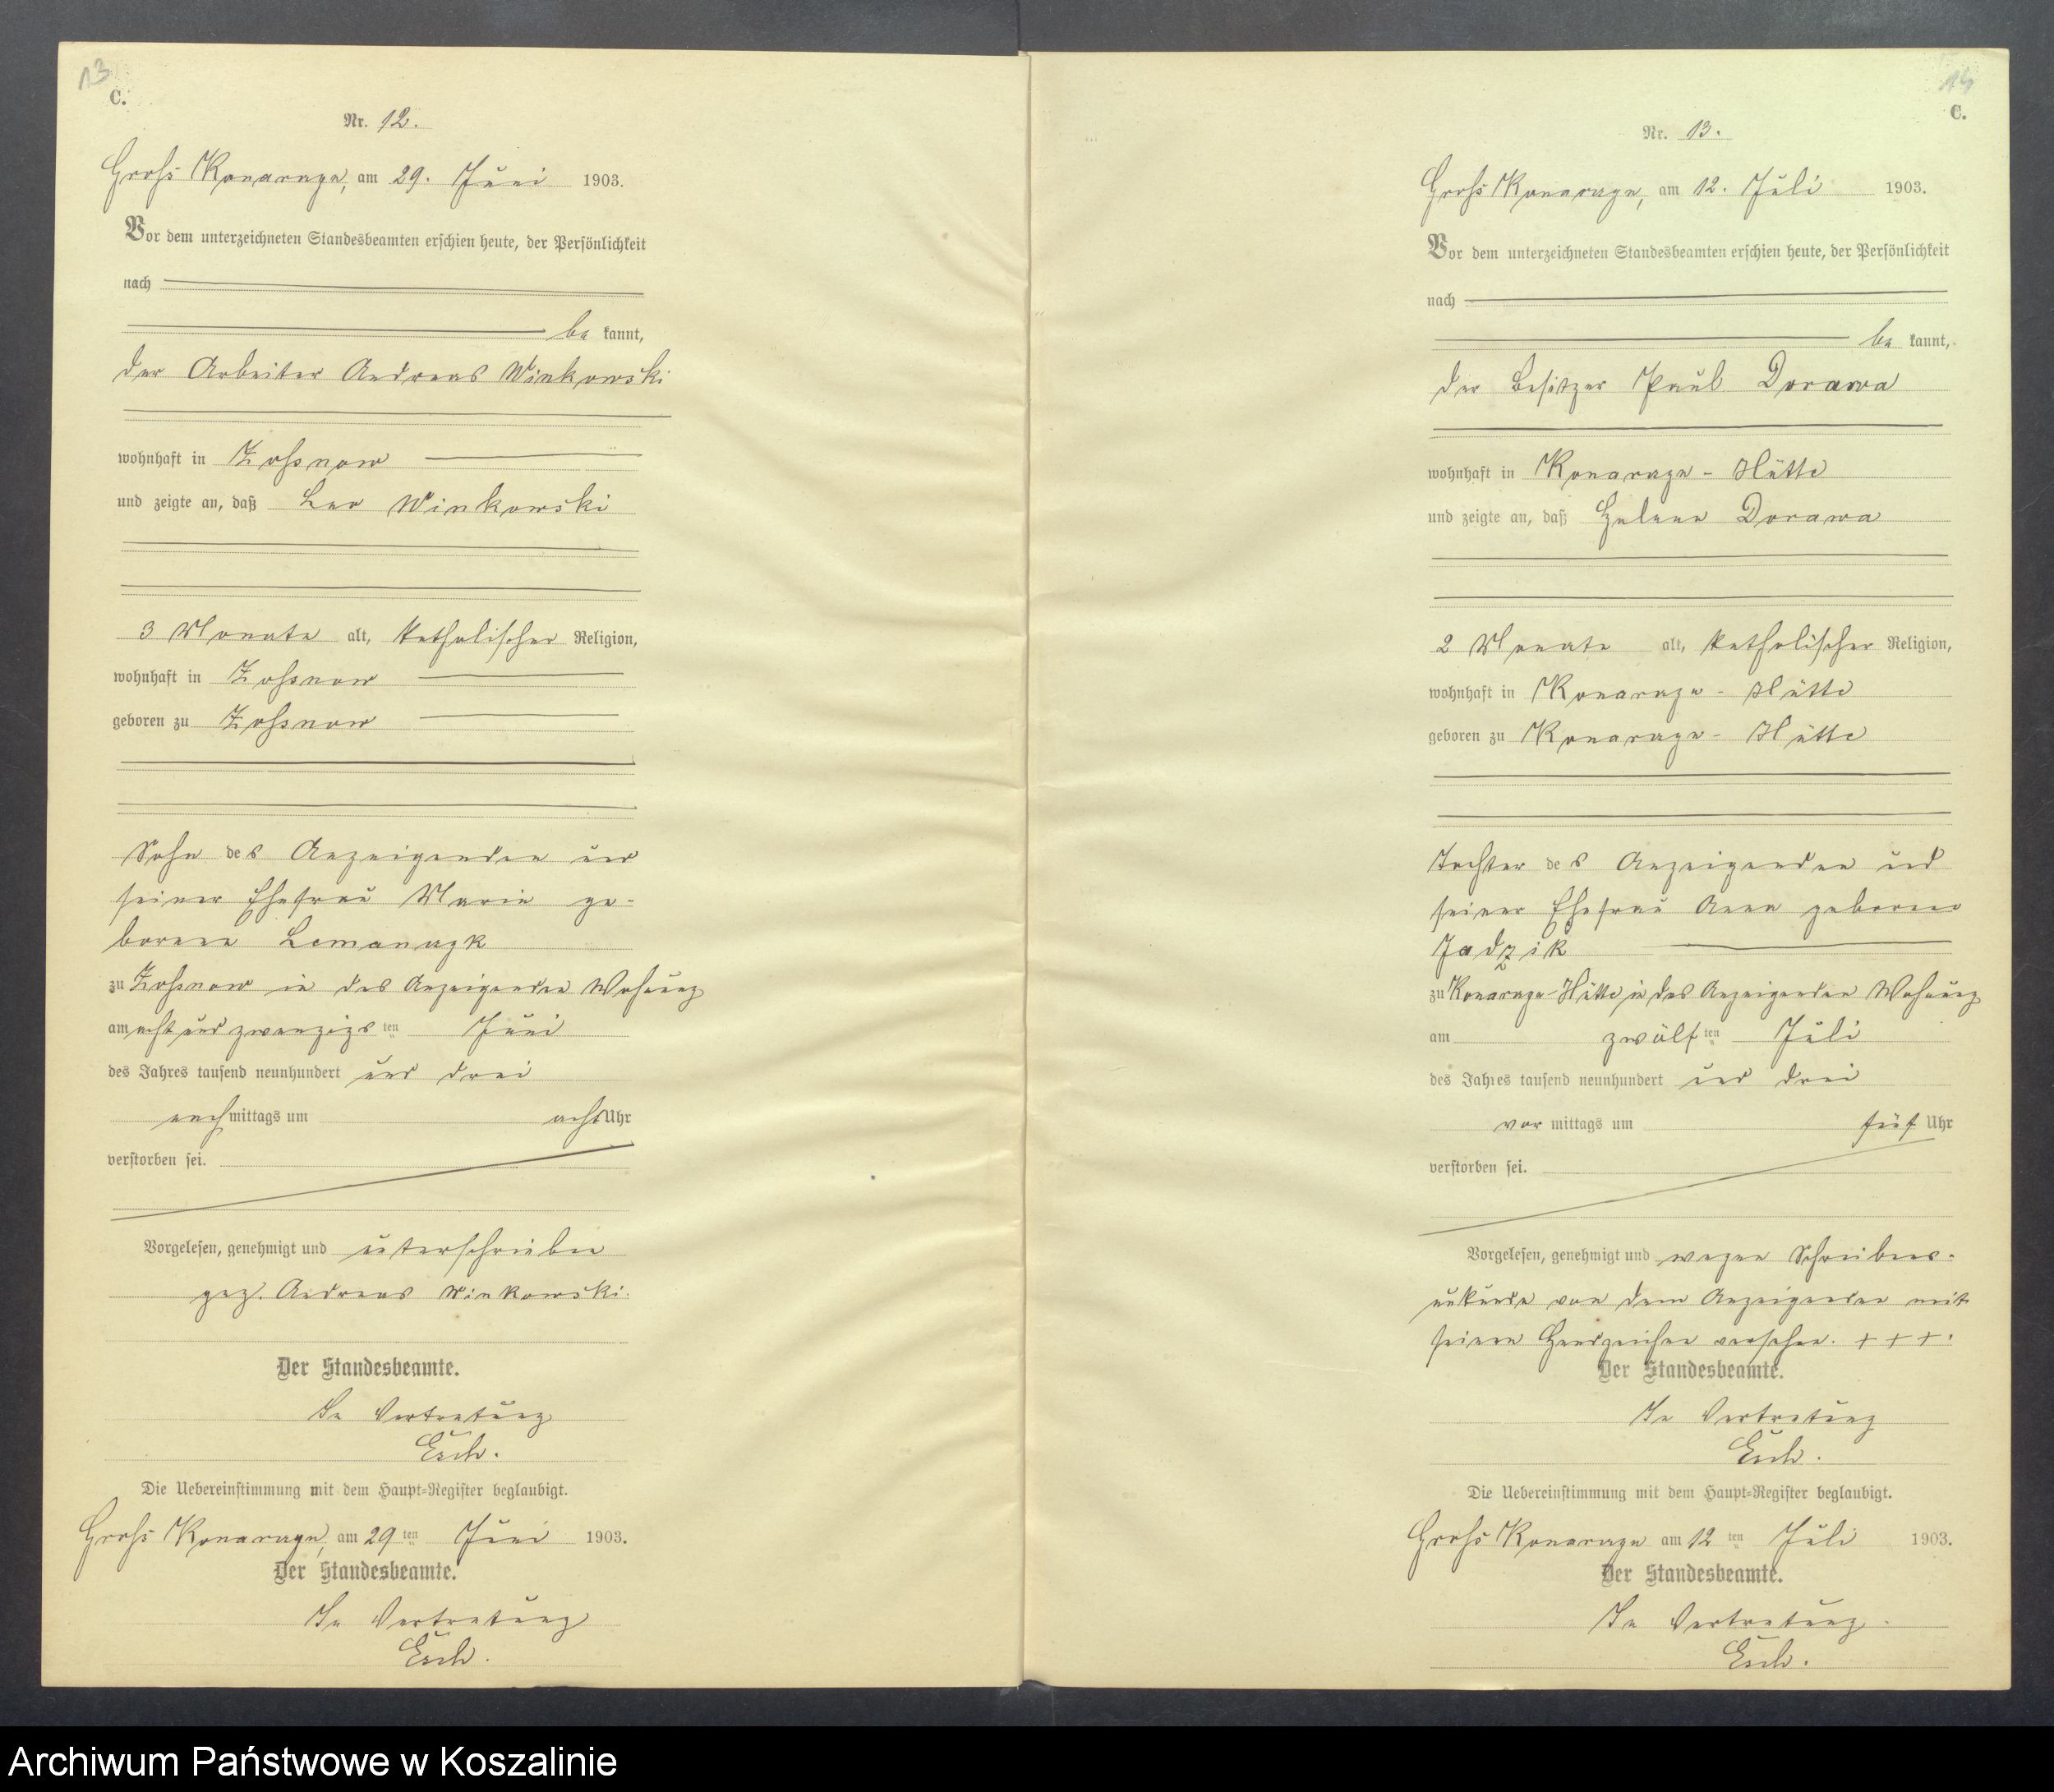 13
C.
Nr. 12.
Gross Konarzyn, am 29. Juni 1903.
Vor dem unterzeichneten Standesbeamten erschien heute, der Persönlichkeit
nach
be kannt,
der Arbeiter Andreas Winkowski
wohnhaft in Zossnow
und zeigte an, daß Leo Winkowski
3 Monate alt, katholischer Religion,
wohnhaft in Zossnow
geboren zu Zossnow
Sohn des Anzeigenden und
seiner Ehefrau Marie ge-
borene Lemanczyk
zu Zossnow in des Anzeigenden Wohnung
am acht und zwanzigsten Juni
des Jahres tausend neunhundert und drei
nach mittags um acht Uhr
verstorben sei.
Vorgelesen, genehmigt und unterschrieben
gez. Andreas Winkowski.
Der Standesbeamte.
In Vertretung
Esch.
Die Uebereinstimmung mit dem Haupt-Register beglaubigt.
Gross Konarzyn, am 29ten Juni 1903.
Der Standesbeamte.
In Vertretung
Esch.
14
C.
Nr. 13.
Gross Konarzyn, am 12. Juli 1903.
Vor dem unterzeichneten Standesbeamten erschien heute, der Persönlichkeit
nach
be kannt,
der Besitzer Paul Dorawa
wohnhaft in Konarzyn-Hütte
und zeigte an, daß Helene Dorawa
2 Monate alt, katholischer Religion,
wohnhaft in Konarzyn-Hütte
geboren zu Konarzyn-Hütte
Tochter des Anzeigenden und
seiner Ehefrau Anna geborene
Jadzik
zu Konarzyn-Hütte in des Anzeigenden Wohnung
am zwölften Juli
des Jahres tausend neunhundert und drei
vor mittags um fünf Uhr
verstorben sei.
Vorgelesen, genehmigt und wegen Schreibens-
unkunde von dem Anzeigenden mit
seinem Handzeichen versehen. + + +.
Der Standesbeamte.
In Vertretung
Esch.
Die Uebereinstimmung mit dem Haupt-Register beglaubigt.
Gross Konarzyn am 12ten Juli 1903.
Der Standesbeamte.
In Vertretung.
Esch.
Archiwum Państwowe w Koszalinie